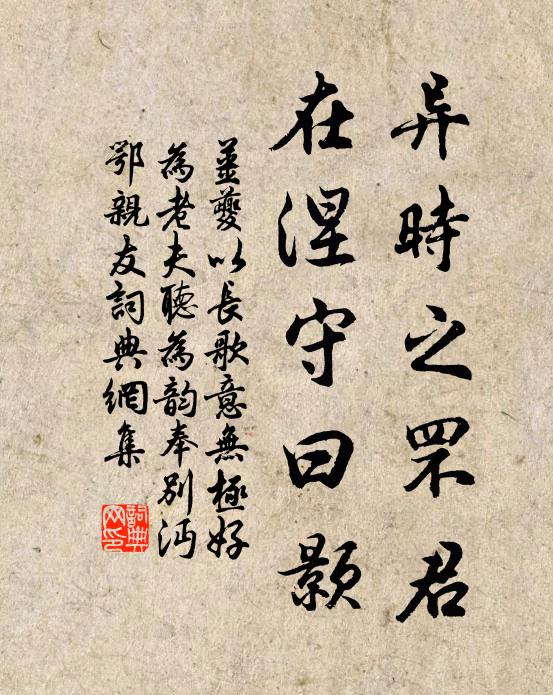 异時之罘君
在涅守曰顥
薑夔以長歌意無極好
為老夫聽為韵奉別沔
鄂親友詞典網集
詞典
网印